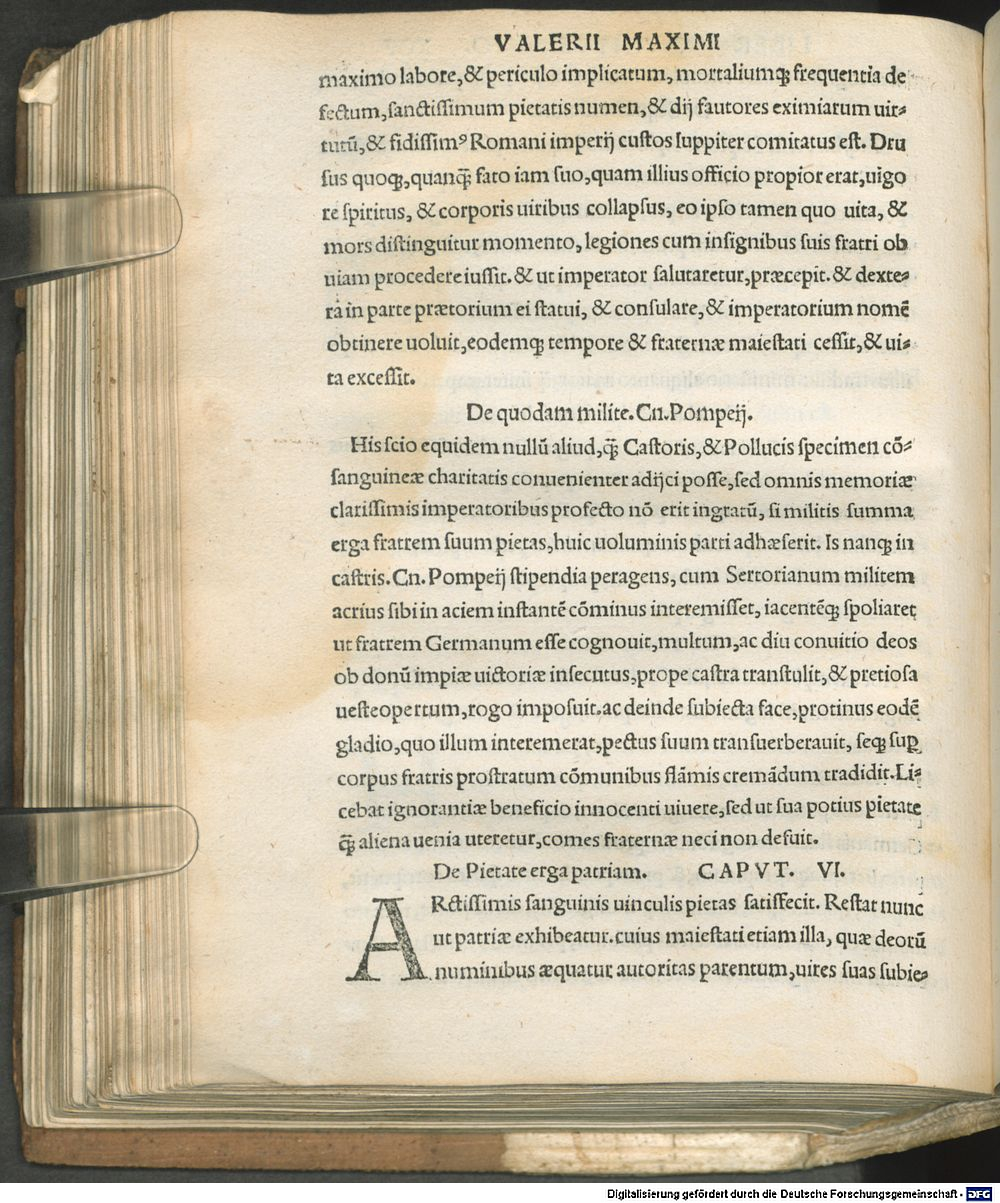 VALERII MAXIMI
maximo labore,& periculo implicatum, mortaliumq̃ frequentia de
fectum,sanctissimum pietatis numen,& dij fautores eximiarum uir-
tutũ,& fidissimꝰ Romani imperij custos Iuppiter comitatus est. Dru
sus quoq;,quanq̃ fato iam suo,quam illius officio propior erat,uigo
re spiritus, & corporis uiribus collapsus, eo ipso tamen quo uita, &
mors distinguitur momento, legiones cum insignibus suis fratri ob
uiam procedere iussit. & ut imperator salutaretur,præcepit. & dexte-
rã in parte prætorium ei statui, & consulare, & imperatorium nomẽ
obtinere uoluit,eodemq; tempore & fraternæ maiestati cessit,& ui-
ta excessit.
De quodam milite. Cn. Pompeij.
His scio equidem nullũ aliud,q̃ Castoris,& Pollucis specimen cõ-
sanguineæ charitatis conuenienter adijci posse,sed omnis memoriæ
clarissimis imperatoribus profecto nõ erit ingratũ, si militis summa
erga fratrem suum pietas,huic uoluminis parti adhæserit. Is nanq; in
castris. Cn. Pompeij stipendia peragens, cum Sertorianum militem
acrius sibi in aciem instantẽ cõminus interemisset, iacentẽq; spoliaret
ut fratrem Germanum esse cognouit,multum, ac diu conuitio deos
ob donũ impiæ uictoriæ insecutus,prope castra transtulit,& pretiosa
ueste opertum,rogo imposuit. ac deinde subiecta face,protinus eodẽ
gladio,quo illum interemerat,pectus suum transuerberauit, seq; suꝑ
corpus fratris prostratum cõmunibus flãmis cremãdum tradidit. Li-
cebat ignorantiæ beneficio innocenti uiuere,sed ut sua potius pietate
q̃ aliena uenia uteretur,comes fraternæ neci non defuit.
De Pietate erga patriam. CAPVT. VI.
ARctissimis sanguinis uinculis pietas satisfecit. Restat nunc
ut patriæ exhibeatur. cuius maiestati etiam illa, quæ deorũ
numinibus æquatur autoritas parentum,uires suas subie-
Digitalisierung gefördert durch die Deutsche Forschungsgemeinschaft - DFG